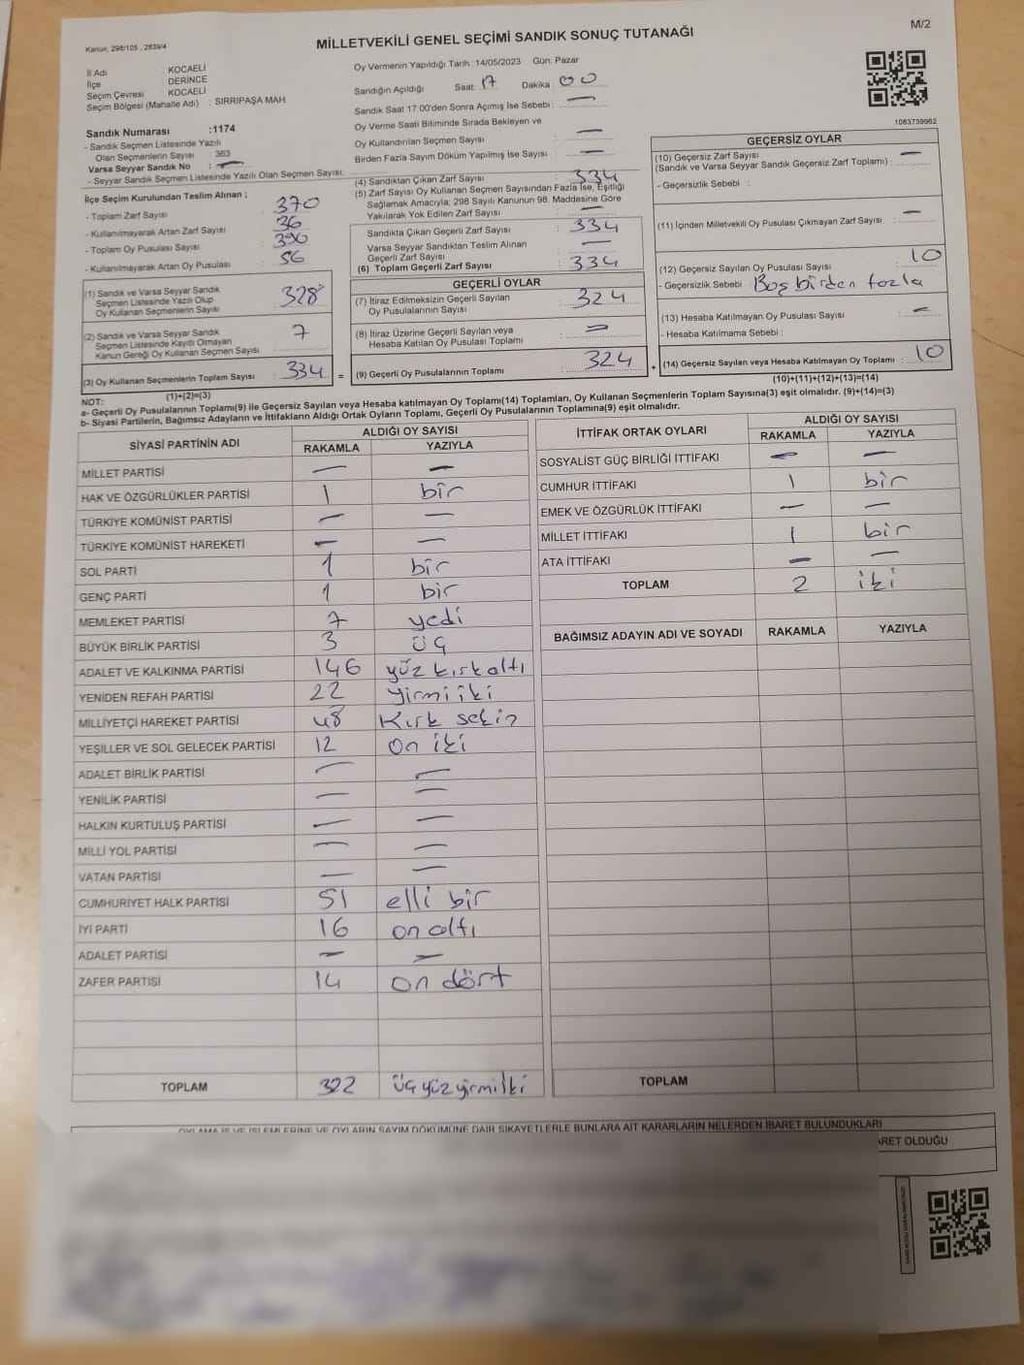 M/2
Kanun, 298/105 , 2839/4
MİLLETVEKİLİ GENEL SEÇİMİ SANDIK SONUÇ TUTANAĞI
İl Adı : KOCAELİ
İlçe : DERİNCE
Seçim Çevresi : KOCAELİ
Seçim Bölgesi (Mahalle Adı) : SIRRIPAŞA MAH
Sandık Numarası :1174
- Sandık Seçmen Listesinde Yazılı
Olan Seçmenlerin Sayısı : 363
Varsa Seyyar Sandık No : —
- Seyyar Sandık Seçmen Listesinde Yazılı Olan Seçmen Sayısı:
Oy Vermenin Yapıldığı Tarih :14/05/2023 Gün: Pazar
Sandığın Açıldığı Saat: 17 Dakika: 00
Sandık Saat 17:00'den Sonra Açımış İse Sebebi : —
Oy Verme Saati Bitiminde Sırada Bekleyen ve
Oy Kullandırılan Seçmen Sayısı : —
Birden Fazla Sayım Döküm Yapılmış İse Sayısı : —
1083739962
İlçe Seçim Kurulundan Teslim Alınan ;
- Toplam Zarf Sayısı : 370
- Kullanılmayarak Artan Zarf Sayısı : 36
- Toplam Oy Pusulası Sayısı : 390
- Kullanılmayarak Artan Oy Pusulası : 56
(1) Sandık ve Varsa Seyyar Sandık
Seçmen Listesinde Yazılı Olup
Oy Kullanan Seçmenlerin Sayısı : 328
(2) Sandık ve Varsa Seyyar Sandık
Seçmen Listesinde Kayıtlı Olmayan
Kanun Gereği Oy Kullanan Seçmen Sayısı : 7
(3) Oy Kullanan Seçmenlerin Toplam Sayısı : 334
(1)+(2)=(3)
(4) Sandıktan Çıkan Zarf Sayısı : 334
(5) Zarf Sayısı Oy Kullanan Seçmen Sayısından Fazla İse, Eşitliği
Sağlamak Amacıyla; 298 Sayılı Kanunun 98. Maddesine Göre
Yakılarak Yok Edilen Zarf Sayısı : —
Sandıkta Çıkan Geçerli Zarf Sayısı : 334
Varsa Seyyar Sandıktan Teslim Alınan
Geçerli Zarf Sayısı : —
(6) Toplam Geçerli Zarf Sayısı : 334
GEÇERLİ OYLAR
(7) İtiraz Edilmeksizin Geçerli Sayılan
Oy Pusulalarının Sayısı : 324
(8) İtiraz Üzerine Geçerli Sayılan veya
Hesaba Katılan Oy Pusulası Toplamı : —
= (9) Geçerli Oy Pusulalarının Toplamı : 324
GEÇERSİZ OYLAR
(10) Geçersiz Zarf Sayısı
(Sandık ve Varsa Seyyar Sandık Geçersiz Zarf Toplamı) : —
- Geçersizlik Sebebi :
(11) İçinden Milletvekili Oy Pusulası Çıkmayan Zarf Sayısı : —
(12) Geçersiz Sayılan Oy Pusulası Sayısı : 10
- Geçersizlik Sebebi : Boş birden fazla
(13) Hesaba Katılmayan Oy Pusulası Sayısı : —
- Hesaba Katılmama Sebebi :
+ (14) Geçersiz Sayılan veya Hesaba Katılmayan Oy Toplamı : 10
(10)+(11)+(12)+(13)=(14)
NOT:
a- Geçerli Oy Pusulalarının Toplamı(9) ile Geçersiz Sayılan veya Hesaba katılmayan Oy Toplamı(14) Toplamları, Oy Kullanan Seçmenlerin Toplam Sayısına(3) eşit olmalıdır. (9)+(14)=(3)
b- Siyasi Partilerin, Bağımsız Adayların ve İttifakların Aldığı Ortak Oyların Toplamı, Geçerli Oy Pusulalarının Toplamına(9) eşit olmalıdır.
SİYASİ PARTİNİN ADI ALDIĞI OY SAYISI
RAKAMLA YAZIYLA
MİLLET PARTİSİ — —
HAK VE ÖZGÜRLÜKLER PARTİSİ 1 bir
TÜRKİYE KOMÜNİST PARTİSİ — —
TÜRKİYE KOMÜNİST HAREKETİ — —
SOL PARTİ 1 bir
GENÇ PARTİ 1 bir
MEMLEKET PARTİSİ 7 yedi
BÜYÜK BİRLİK PARTİSİ 3 üç
ADALET VE KALKINMA PARTİSİ 146 yüz kırkaltı
YENİDEN REFAH PARTİSİ 22 yirmi iki
MİLLİYETÇİ HAREKET PARTİSİ 48 Kırk sekiz
YEŞİLLER VE SOL GELECEK PARTİSİ 12 on iki
ADALET BİRLİK PARTİSİ — —
YENİLİK PARTİSİ — —
HALKIN KURTULUŞ PARTİSİ — —
MİLLİ YOL PARTİSİ — —
VATAN PARTİSİ — —
CUMHURİYET HALK PARTİSİ 51 elli bir
İYİ PARTİ 16 on altı
ADALET PARTİSİ — —
ZAFER PARTİSİ 14 on dört
TOPLAM 322 üç yüz yirmi iki
İTTİFAK ORTAK OYLARI ALDIĞI OY SAYISI
RAKAMLA YAZIYLA
SOSYALİST GÜÇ BİRLİĞİ İTTİFAKI — —
CUMHUR İTTİFAKI 1 bir
EMEK VE ÖZGÜRLÜK İTTİFAKI — —
MİLLET İTTİFAKI 1 bir
ATA İTTİFAKI — —
TOPLAM 2 iki
BAĞIMSIZ ADAYIN ADI VE SOYADI RAKAMLA YAZIYLA
TOPLAM
OYLAMA İŞ VE İŞLEMLERİNE VE OYLARIN SAYIM DÖKÜMÜNE DAİR ŞİKAYETLERLE BUNLARA AİT KARARLARIN NELERDEN İBARET BULUNDUKLARI
ARET OLDUĞU